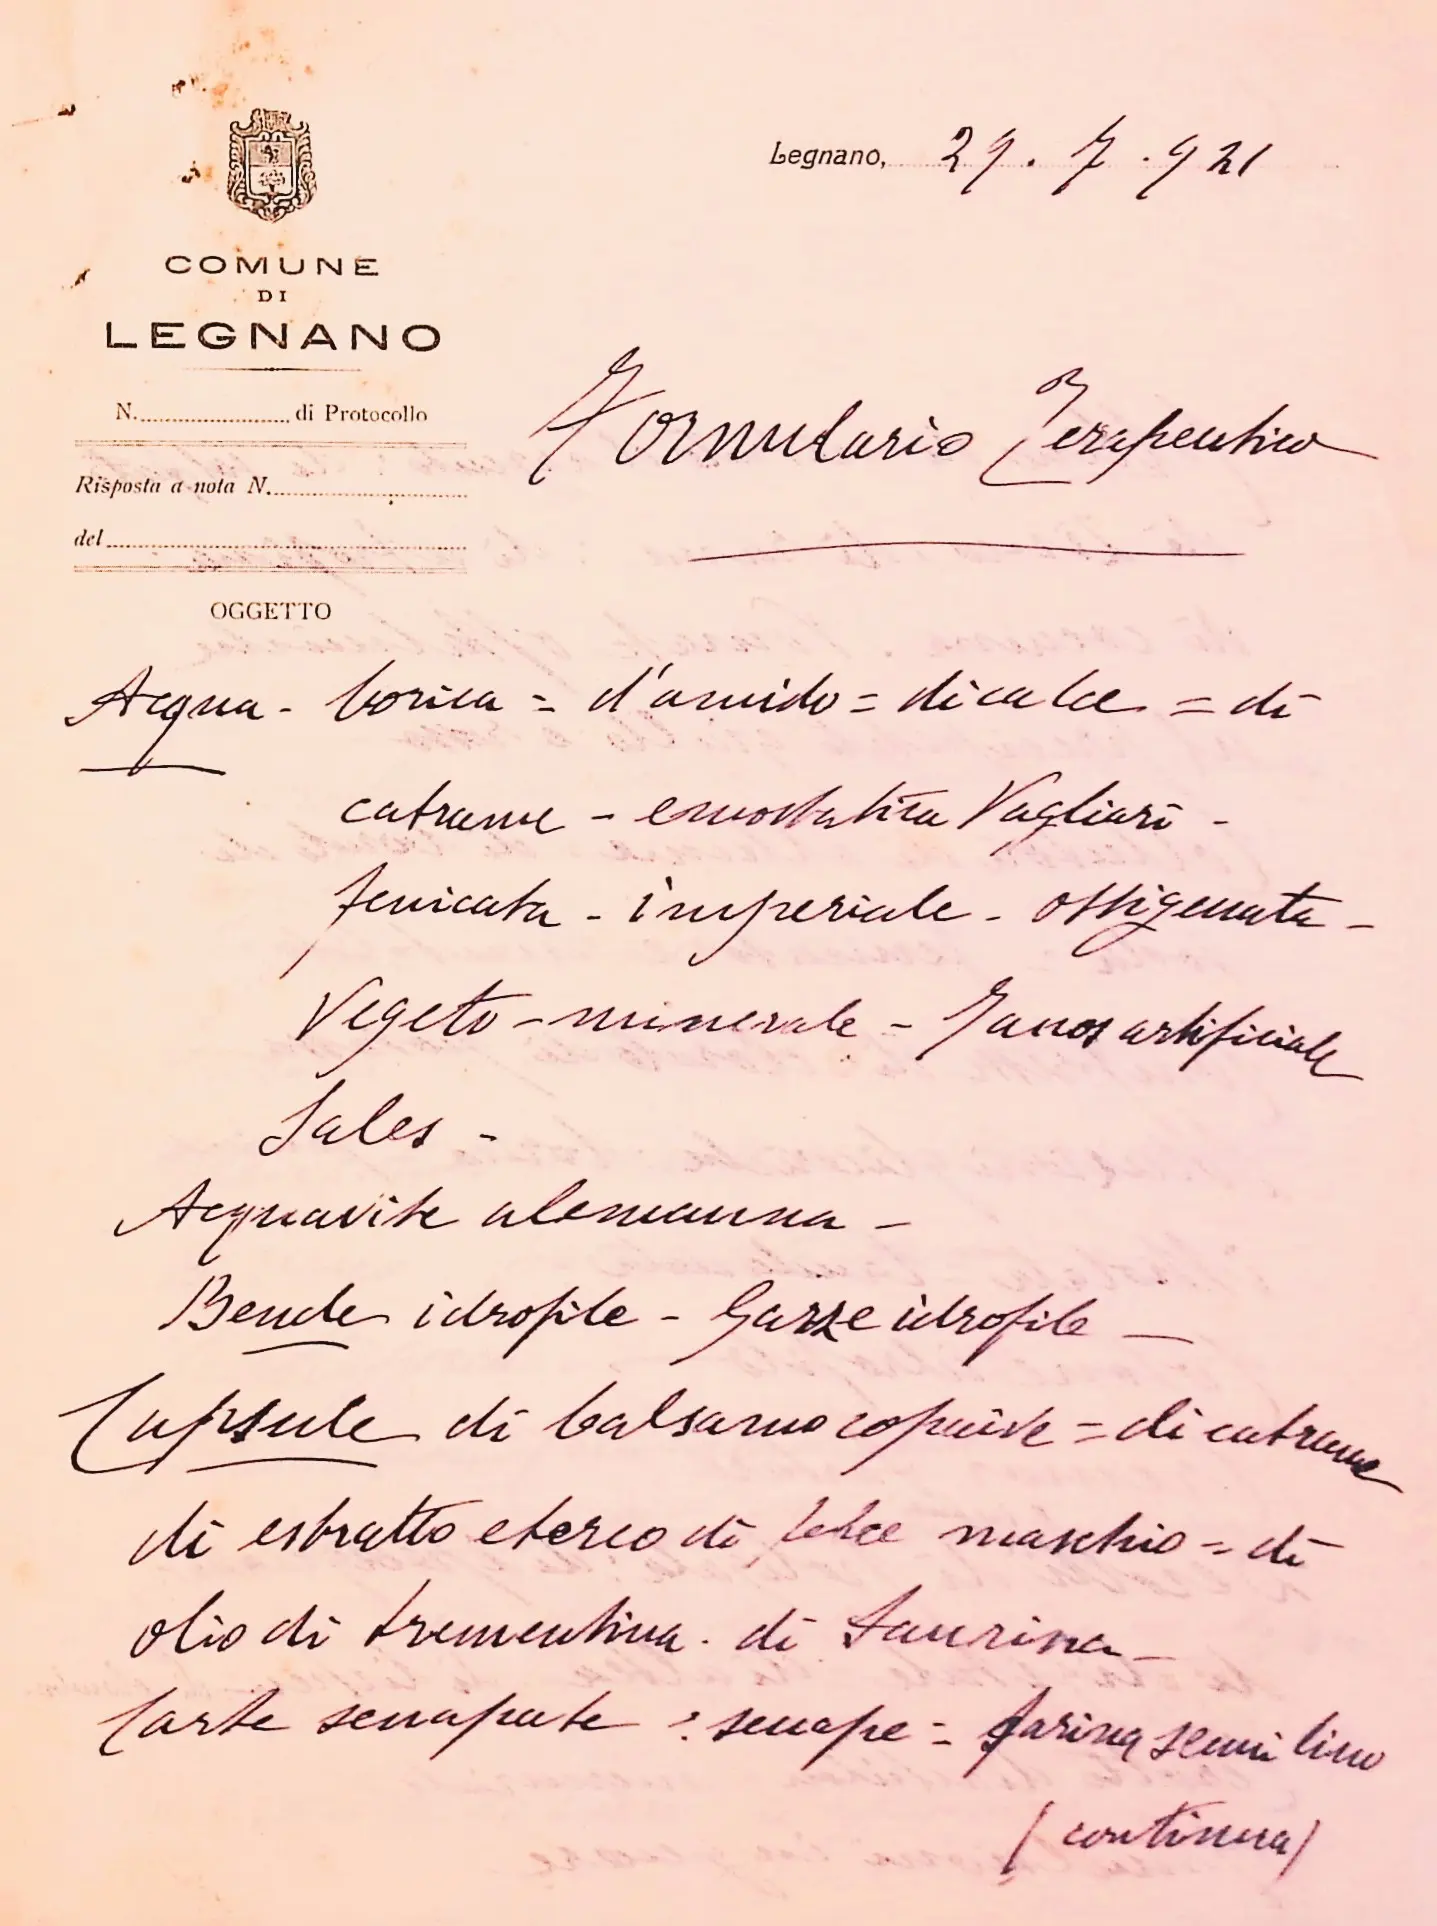 Legnano, 29.7.921
COMUNE
DI
LEGNANO
N. di Protocollo
Risposta a nota N.
del
OGGETTO
Formulario Terapeutico
Acqua - borica = d'amido = di calce = di
catrame - emostatica Pagliari -
fenicata - imperiale - ossigenata -
Vegeto - minerale - Janos artificiale
Sales -
Acquavite alemanna -
Bende idrofile - Garze idrofile -
Capsule di balsamo copaive = di catrame
di estratto etereo di felce maschio = di
olio di trementina. di Taurina -
Carte senapate : senape = farina semi lino
(continua)